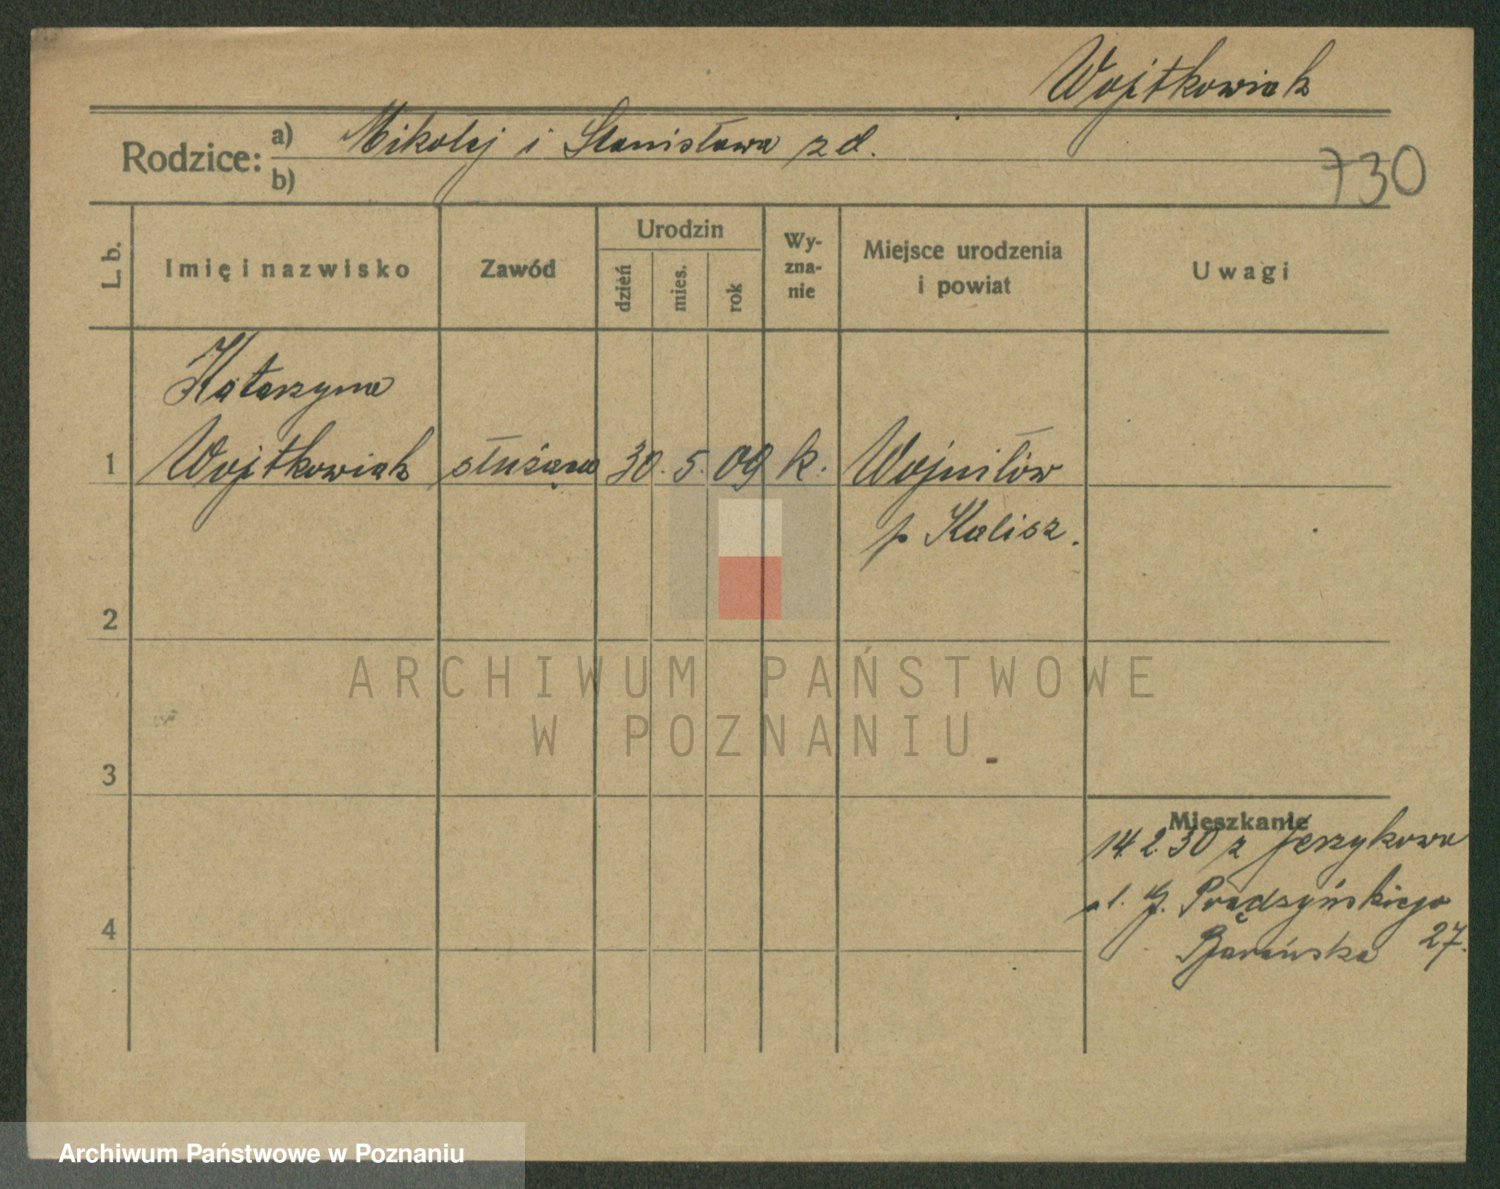 Wojtkowiak
Rodzice: a) Mikołaj i Stanisława z d.
b)
730
L. b.
Imię i nazwisko
Zawód
Urodzin
dzień
mies.
rok
Wy-
zna-
nie
Miejsce urodzenia
i powiat
Uwagi
Katarzyna
1 Wojtkowiak służąca 30. 5. 09 k. Wojniłów
p. Kalisz.
2
3
4
Mieszkanie
14.2.30 z Jerzykowa
Prądzyńskiego
Barańska 27.
ARCHIWUM PAŃSTWOWE
W POZNANIU
Archiwum Państwowe w Poznaniu